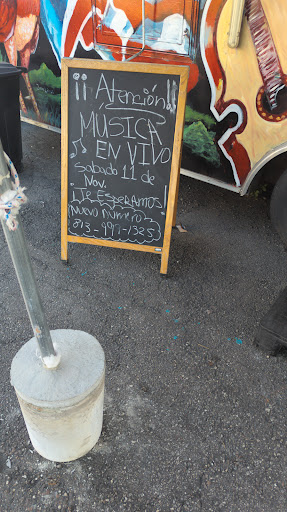 ¡¡ Atención!!
MUSICA
EN VIVO
Sabado 11 de
Nov.
¡Te Esperamos
Nuevo Numero
813-997-1325